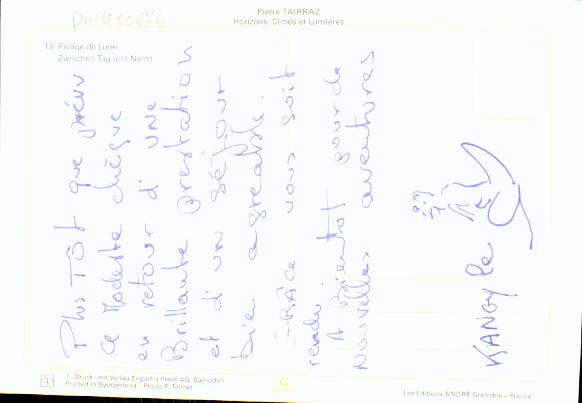 DIV 1100674
Pierre TAIRRAZ
Horizons, Cimes et Lumières
T3 Rivage de Lune
Zwischen Tag und Nacht
Plus TÔt que prévu
ce Modeste chèque
en retour d'une
Brillante prestation
et d'un séjour
bien agréable.
GRÂCE vous soit
rendu
A Bientôt pour de
Nouvelles aventures
KANGY le
© Druck und Verlag Engadin Press AG, Samedan
Printed in Switzerland Photo P. Tairraz
Les Editions ANDRÉ Grenoble - France